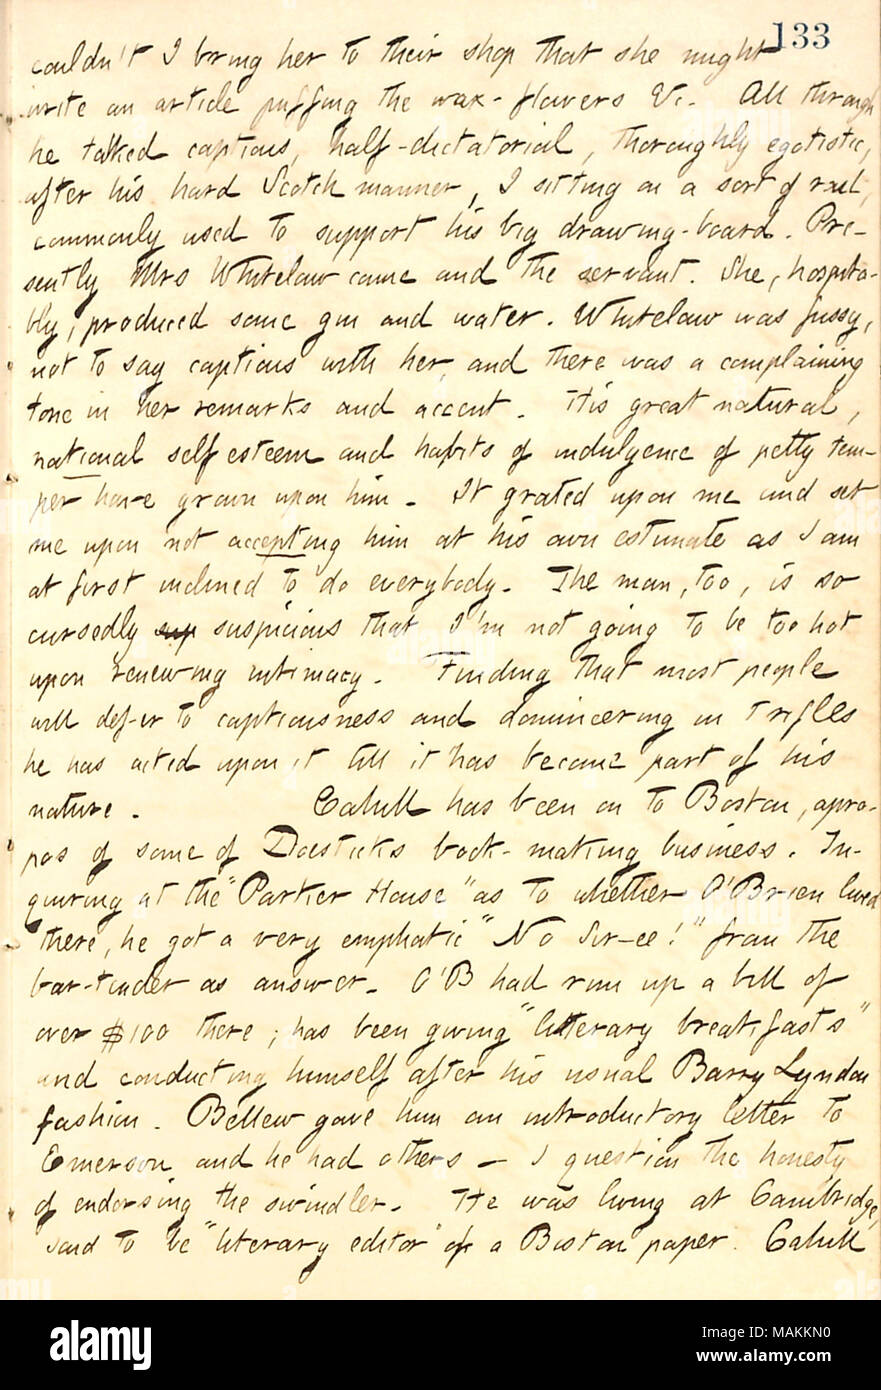 133
couldn't I bring her to their shop that she might
write an article puffing the wax-flowers &c. All through
he talked captious, half-dictatorial, thoroughly egotistic,
after his hard Scotch manner, I sitting on a sort of rail,
commonly used to support his big drawing-board. Pre-
sently Mrs Whitelaw came and the servant. She, hospita-
bly, produced some gin and water. Whitelaw was fussy,
not to say captious with her, and there was a complaining
tone in her remarks and accent. His great natural,
national self esteem and habits of indulgence of petty tem-
per have grown upon him. It grated upon me and set
me upon not accepting him at his own estimate as I am
at first inclined to do everybody. The man, too, is so
cursedly sup suspicious that I'm not going to be too hot
upon renewing intimacy. Finding that most people
will defer to captiousness and domineering in trifles
he has acted upon it till it has become part of his
nature. Cahill has been on to Boston, apro-
pos of some of Doesticks book-making business. In-
quiring at the "Parker House" as to whether O'Brien lived
there, he got a very emphatic "No Sir-ee!" from the
bar-tender as answer. O'B had run up a bill of
over $100 there; has been giving "literary breakfasts"
and conducting himself after his usual Barry Lyndon
fashion. Bellew gave him an introductory letter to
Emerson and he had others — I question the honesty
of endorsing the swindler. He was living at Cambridge,
said to be "literary editor" of a Boston paper. Cahill
alamy
Image ID: MAKKN0
www.alamy.com